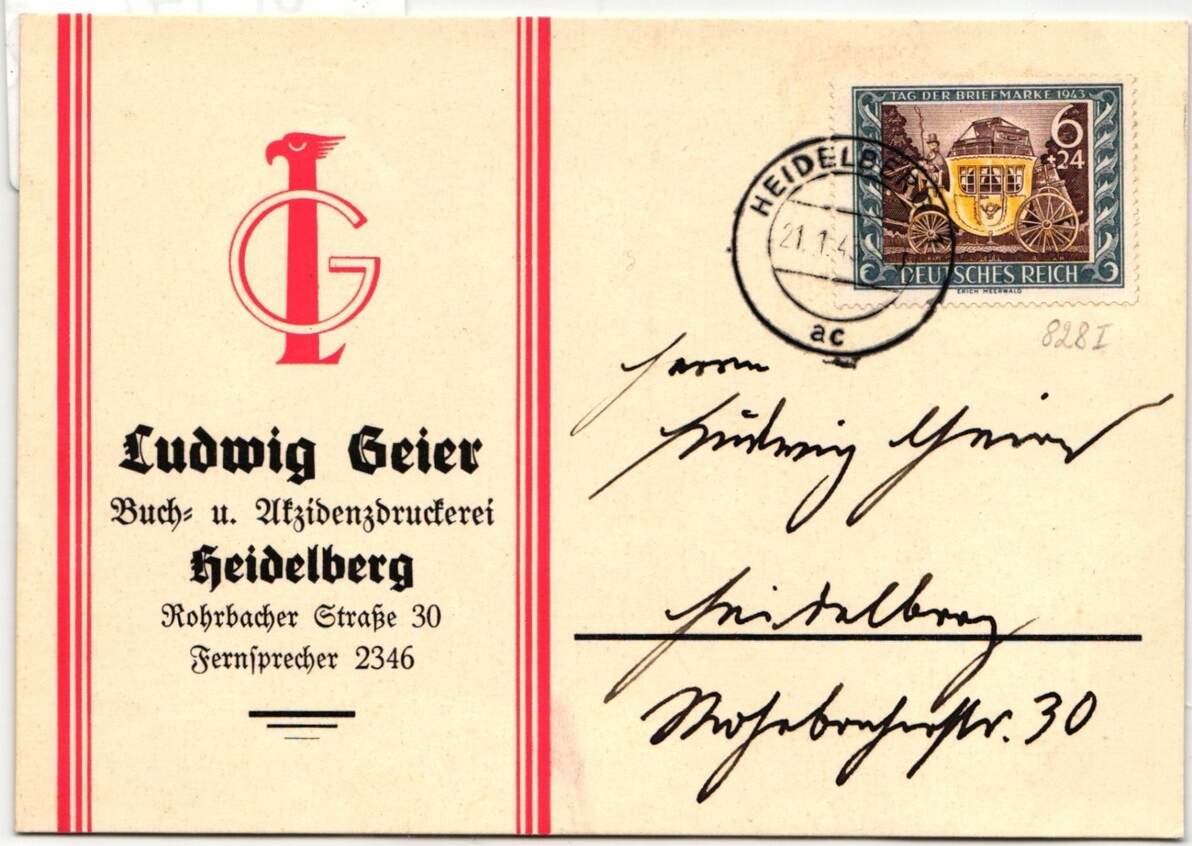 LG
Ludwig Geier
Buch- u. Akzidenzdruckerei
Heidelberg
Rohrbacher Straße 30
Fernsprecher 2346
TAG DER BRIEFMARKE 1943
6
+24
DEUTSCHES REICH
ERICH MEERWALD
HEIDELBERG
21.1.43
ac
828 I
Herrn
Ludwig Geier
Heidelberg
Rohrbacherstr. 30